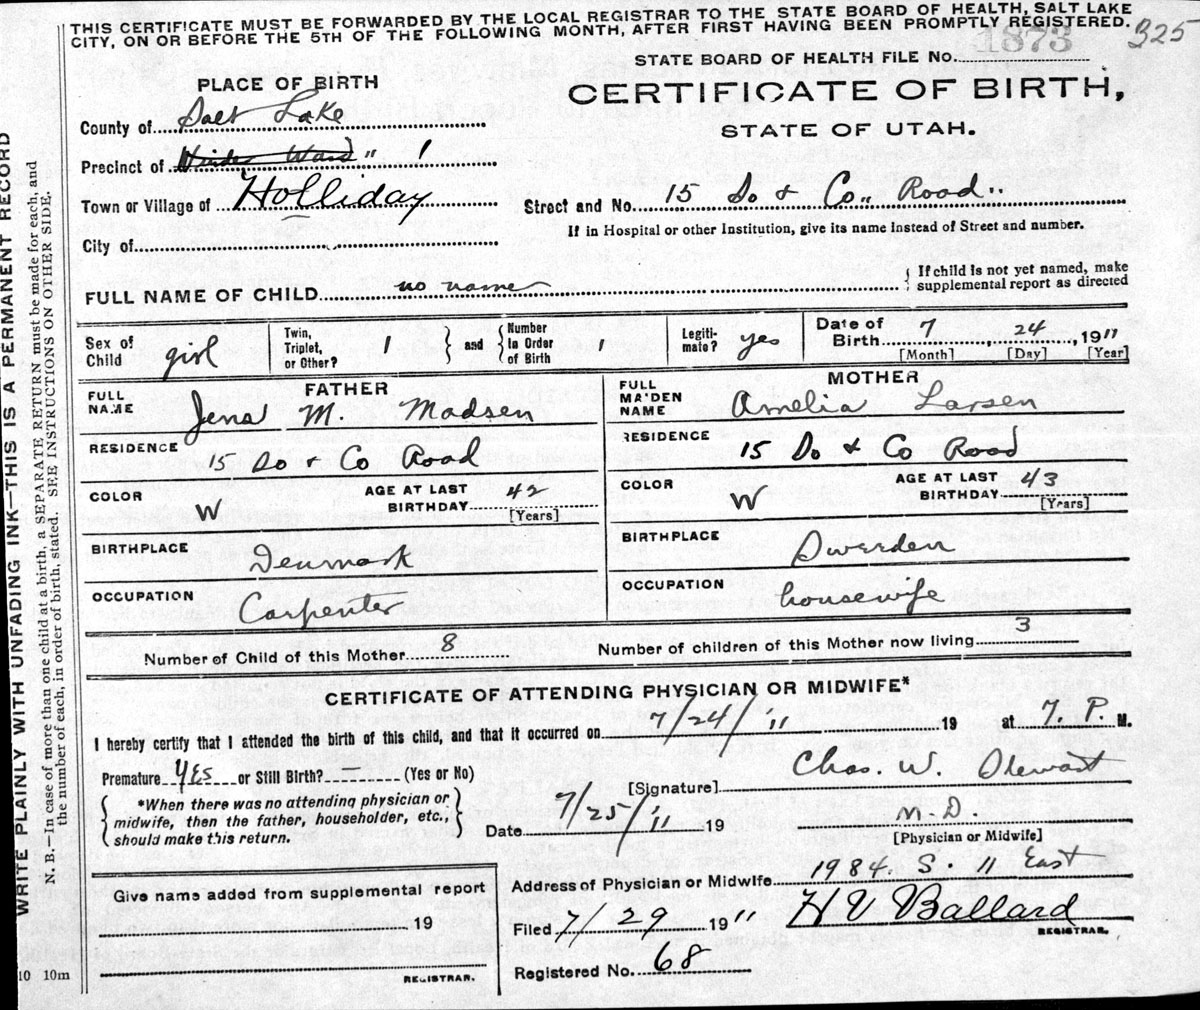 THIS CERTIFICATE MUST BE FORWARDED BY THE LOCAL REGISTRAR TO THE STATE BOARD OF HEALTH, SALT LAKE
CITY, ON OR BEFORE THE 5TH OF THE FOLLOWING MONTH, AFTER FIRST HAVING BEEN PROMPTLY REGISTERED.
325
1873
STATE BOARD OF HEALTH FILE No.
PLACE OF BIRTH
CERTIFICATE OF BIRTH,
STATE OF UTAH.
County of Salt Lake
Precinct of Winder Ward " 1
Town or Village of Holliday
Street and No. 15 So & Co.. Road..
City of
If in Hospital or other Institution, give its name instead of Street and number.
FULL NAME OF CHILD no name
{ If child is not yet named, make
supplemental report as directed
Sex of Child girl
Twin, Triplet, or Other? 1
} and {
Number in Order of Birth
Legiti-mate? yes
Date of Birth 7, 24, 1911
[Month] [Day] [Year]
FATHER
FULL NAME Jens M. Madsen
RESIDENCE 15 So & Co Road
COLOR W
AGE AT LAST BIRTHDAY 42
[Years]
BIRTHPLACE Denmark
OCCUPATION Carpenter
MOTHER
FULL MAIDEN NAME Amelia Larsen
RESIDENCE 15 So & Co Road
COLOR W
AGE AT LAST BIRTHDAY 43
[Years]
BIRTHPLACE Swerden
OCCUPATION housewife
Number of Child of this Mother 8
Number of children of this Mother now living 3
CERTIFICATE OF ATTENDING PHYSICIAN OR MIDWIFE*
I hereby certify that I attended the birth of this child, and that it occurred on 7/24/11 19 at 7. P. M.
Premature YES or Still Birth? – (Yes or No)
{ *When there was no attending physician or
midwife, then the father, householder, etc.,
should make this return. }
[Signature] Chas. W. Stewart
Date 7/25/11 19
M.D.
[Physician or Midwife]
Give name added from supplemental report
19
REGISTRAR.
Address of Physician or Midwife 1984. S. 11 East
Filed 7/29 1911
H V Ballard
REGISTRAR.
Registered No. 68
WRITE PLAINLY WITH UNFADING INK—THIS IS A PERMANENT RECORD
N. B.—In case of more than one child at a birth, a SEPARATE RETURN must be made for each, and
the number of each, in order of birth, stated. SEE INSTRUCTIONS ON OTHER SIDE.
10 10m